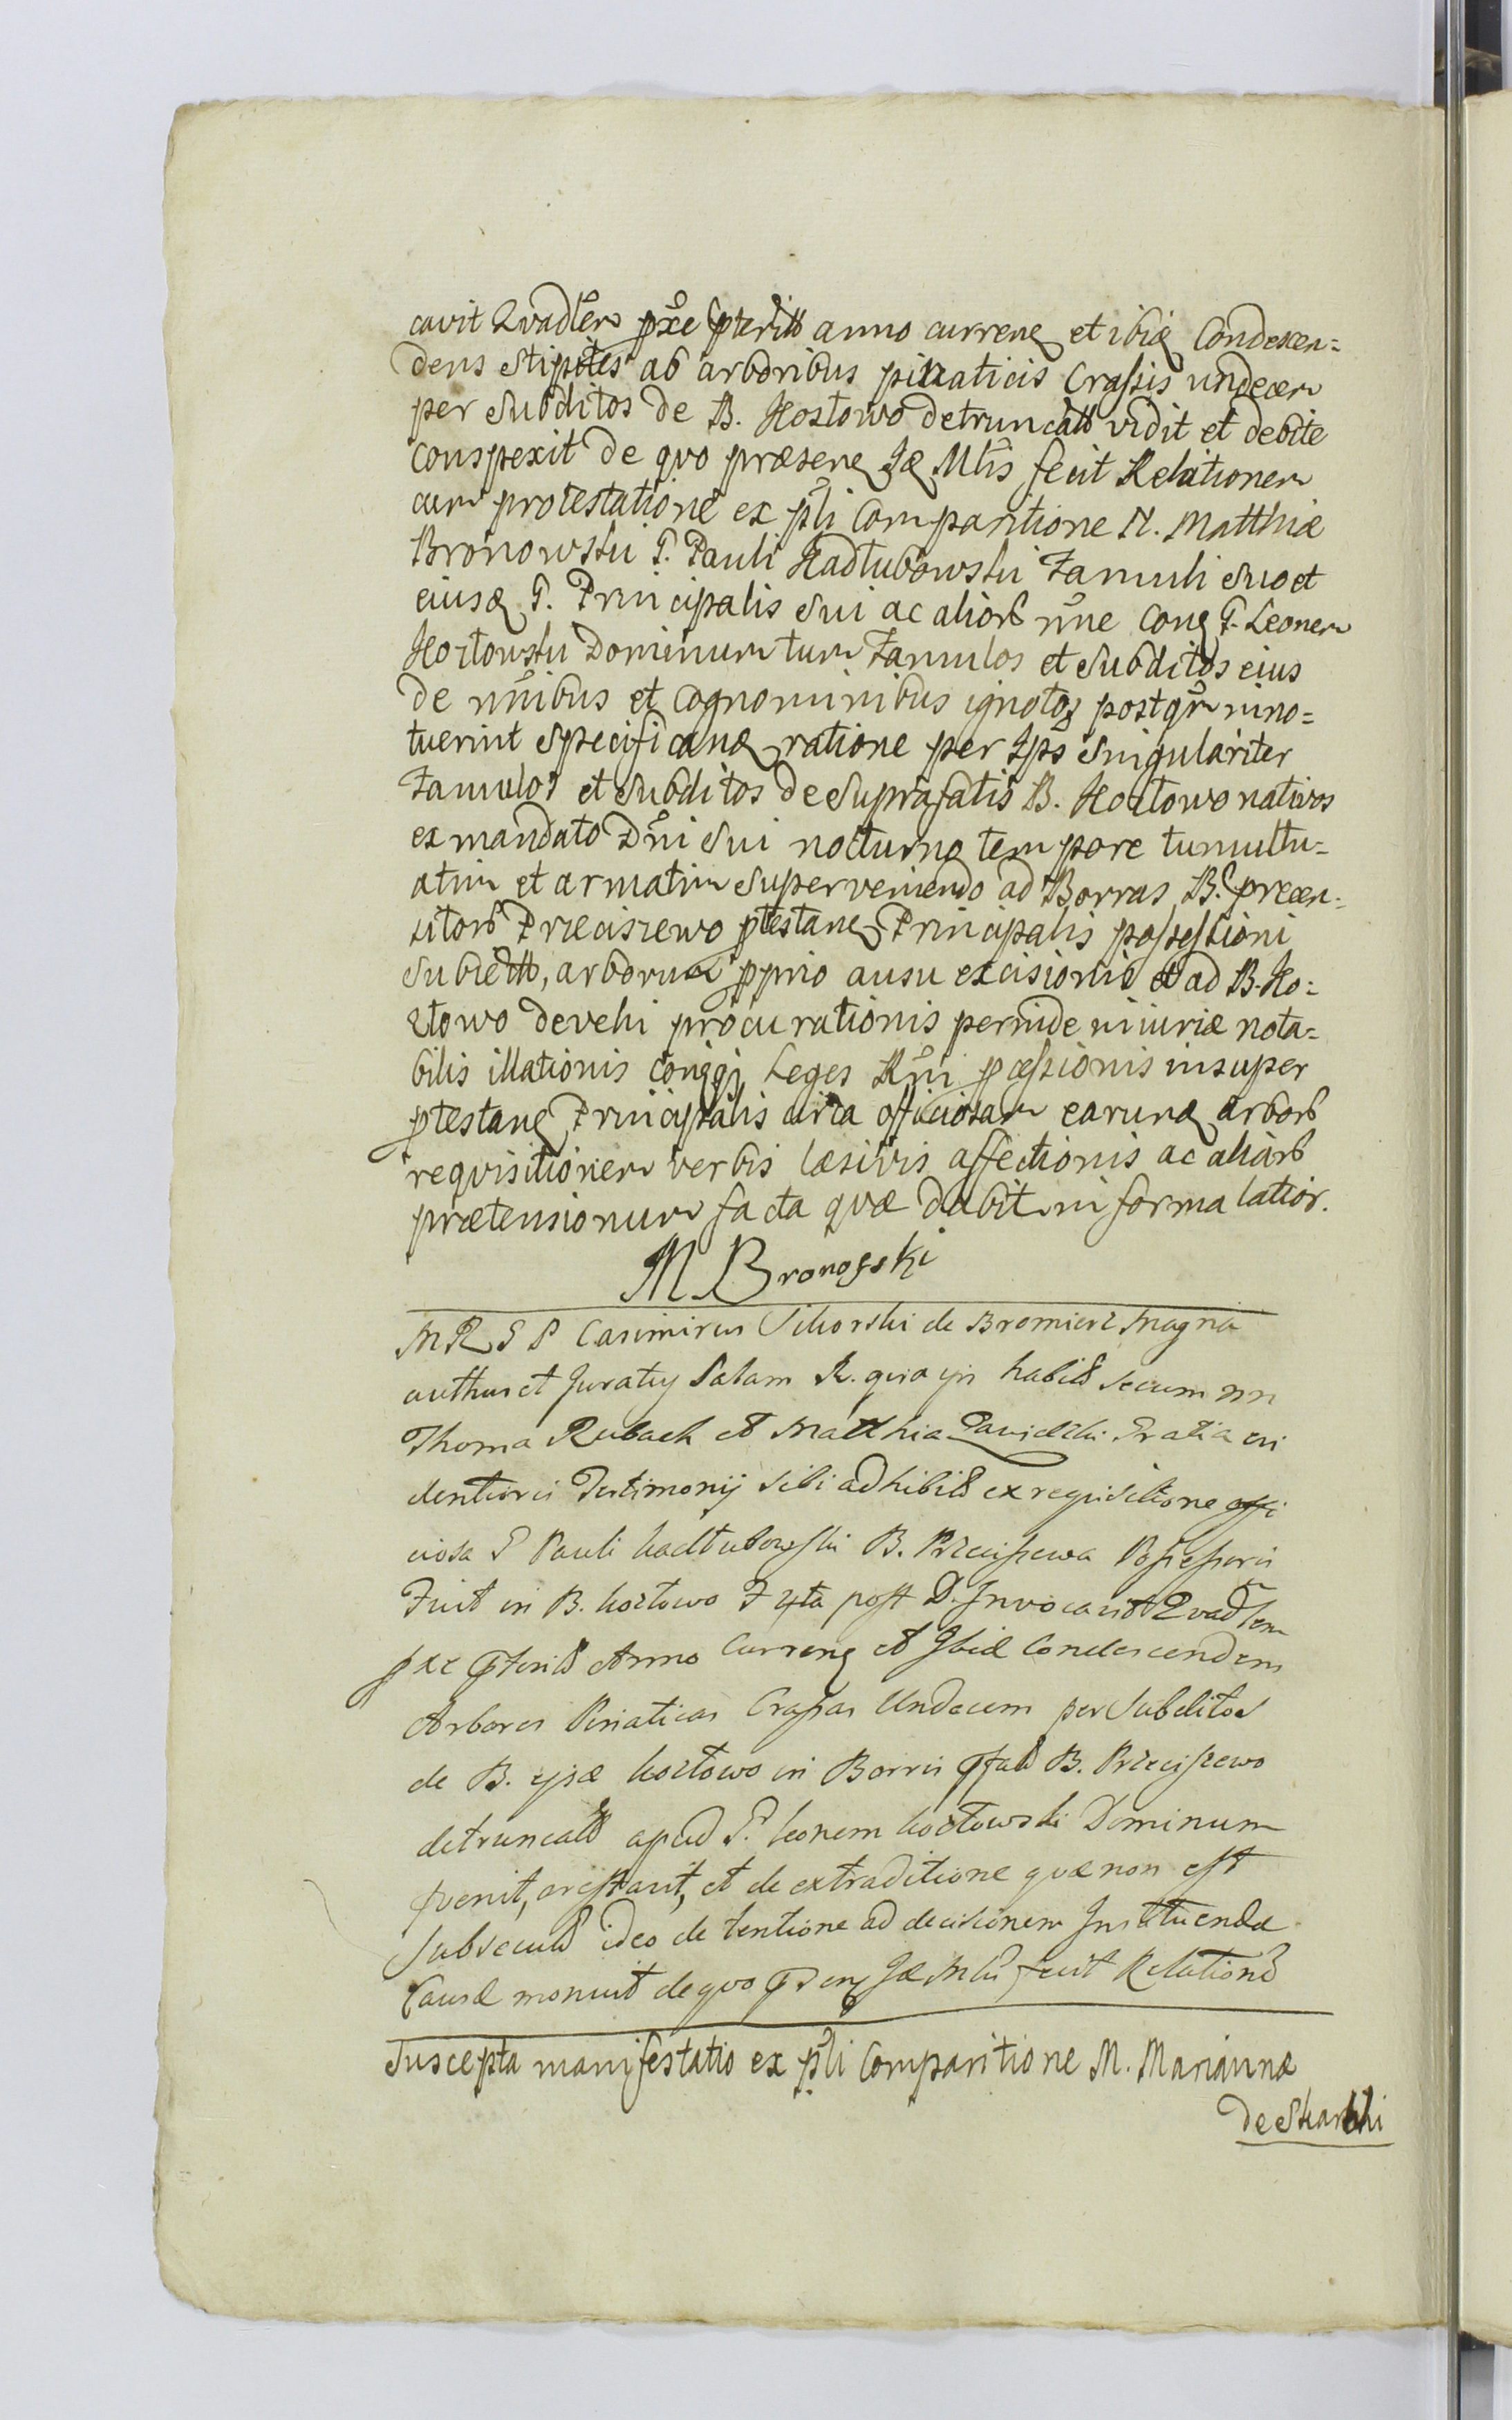 cavit Qvadlem pxe pterit anno curren et ibiq Condescen=
dens Stipites ab arboribus pinaticis Crassis undecem
per Subditos de B. Kostowo detruncatt vidit et debite
conspexit de qvo præsens Jæ Mtis fecit Relationem
cum protestatione ex pli Comparitione N. Matthiæ
Bronowski G. Pauli Kadłubowski Famuli suo et
eiusq G. Principalis Sui ac aliorb nne Con G. Leonem
Koztowski Dominum tum Famulos et Subditos eius
de nnibus et Cognominibus ignotos postqm inno=
tuerint Specificana ratione per Ips Singulariter
Famulos et Subditos de Suprafatis B. Koztowo nativos
ex mandato Dni Sui nocturno tempore tumultu=
atim et armatim Superveniendo ad Borras B. præcen=
sitorb Przeciszewo ptestan Principalis possessioni
Subiectt, arborum pprio ausu excisionis et ad B. Ko=
ztowo devehi procurationis perinde iniuriæ nota=
bilis illationis Leges Rni insuper
ptestan Principalis circa officiosam earunq arborb
reqvisitionem verbis læsivis affectionis ac aliarb
prætensionum facta qvæ dabit in forma latior.
M. Bronofski
M R G P Casimirus Sikorski de Bromierz Magna
authus et Juratus Palam R. quia is habit secum nn
Thoma Rubach et Matthia Pawielski Gratia evi
dentioris Testimonij sibi adhibit ex requisitione offi
ciosa G Pauli kadłubowski B. Przeciszewa Possessoris
Fuit in B. koztowo Fxta post D. Invocavit Qvadlem
pxe pterit Anno Curren et Ibiq Condescendens
Arbores Pinaticas Crassas Undecem per Subditos
de B. ipsæ koztowo in Borris pfat B. Przeciszewo
detruncatt apud G. Leonem koztowski Dominum
pvenit, arestavit, et de extraditione quæ non est
Subsecuta ideo de tentione ad decisionem Instituendæ
Causæ monuit de qvo psens Jæ Mtis fecit Relatione
Suscepta manifestatio ex pli Comparitione M. Mariannæ
de Skarbki